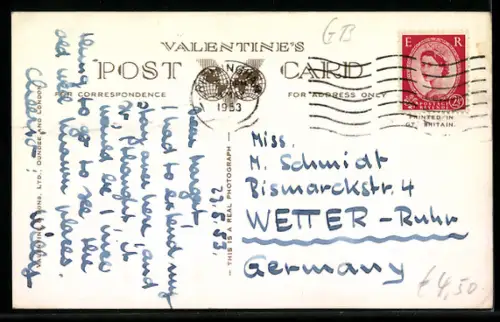 GB
VALENTINE'S
POST CARD
FOR CORRESPONDENCE
FOR ADDRESS ONLY
1953
E R
POSTAGE
REVENUE
2½D
PRINTED IN
GT. BRITAIN.
VALENTINE & SONS, LTD., DUNDEE AND LONDON
THIS IS A REAL PHOTOGRAPH
22.5.53.
Dear Margot,
I had to extend my
stay over here, and
so, I thought, it
would be a nice
thing to go to see the
old well known places.
Cheerio!
Miss.
M. Schmidt
Bismarckstr. 4
WETTER-Ruhr
Germany
€ 4,50